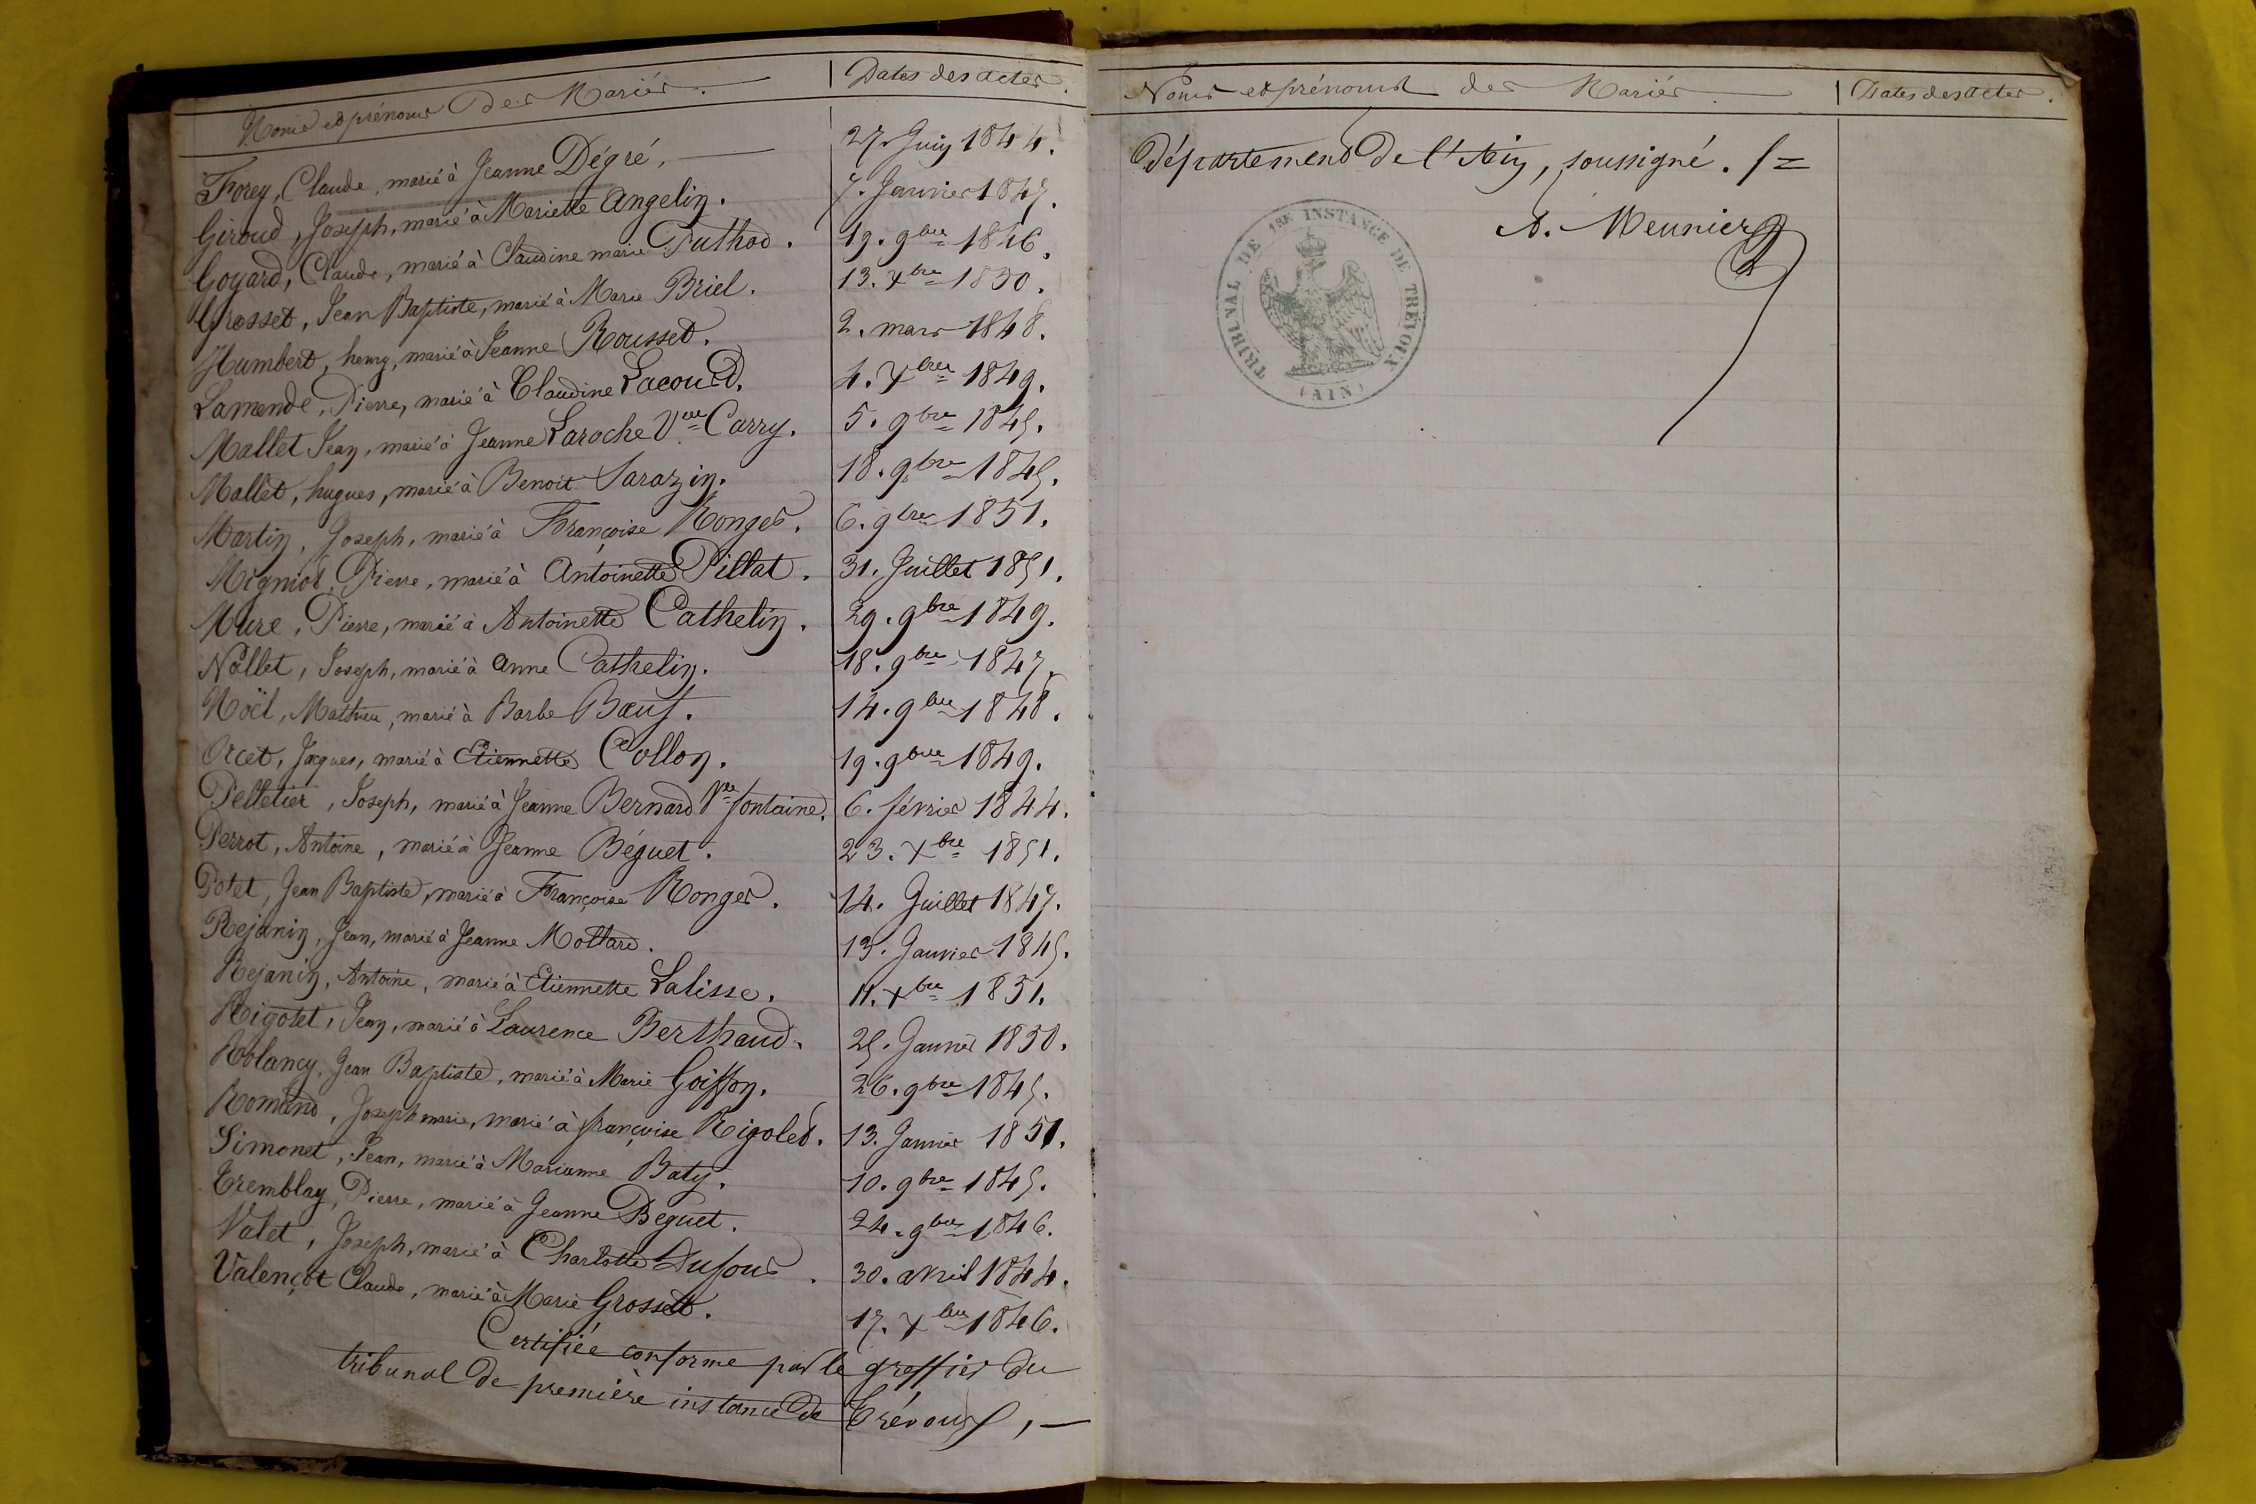 Noms et prénoms des Mariés. Dates des actes.
Forey, Claude, marié à Jeanne Dégré. 27. Juin 1844.
Giroud, Joseph, marié à Mariette Angelin. 7. Janvier 1847.
Goyard, Claude, marié à Claudine marie Puthod. 19. 9bre 1846.
Grosset, Jean Baptiste, marié à Marie Briel. 13. Xbre 1850.
Humbert, henry, marié à Jeanne Rousset. 2. mars 1848.
Lamende, Pierre, marié à Claudine Lacourd. 4. Xbre 1849.
Mallet Jean, marié à Jeanne Laroche Vve Carry. 5. 9bre 1845.
Mallet, hugues, marié à Benoit Sarazin. 18. 9bre 1845.
Martin, Joseph, marié à Françoise Ronger. 6. 9bre 1851.
Migniot, Pierre, marié à Antoinette Pillat. 31. Juillet 1851.
Mure, Pierre, marié à Antoinette Cathelin. 29. 9bre 1849.
Nallet, Joseph, marié à Anne Cathelin. 18. 9bre 1847.
Noël, Mathieu, marié à Barbe Bœuf. 14. 9bre 1848.
Orcet, Jacques, marié à Etiennette Collon. 19. 9bre 1849.
Pelletier, Joseph, marié à Jeanne Bernard Vve fontaine. 6. février 1844.
Perrot, Antoine, marié à Jeanne Béguet. 23. Xbre 1851.
Potet, Jean Baptiste, marié à Françoise Ronger. 14. Juillet 1847.
Rejanin, Jean, marié à Jeanne Mottard. 13. Janvier 1845.
Rejanin, Antoine, marié à Etiennette Lalisse. 11. Xbre 1851.
Rigolet, Jean, marié à Laurence Berthaud. 25. Janvier 1850.
Roblancy, Jean Baptiste, marié à Marie Goiffon. 26. 9bre 1845.
Romand, Joseph marie, marié à françoise Rigolet. 13. Janvier 1851.
Simonet, Jean, marié à Marianne Baty. 10. 9bre 1845.
Tremblay, Pierre, marié à Jeanne Beguet. 24. 9bre 1846.
Valet, Joseph, marié à Charlotte Dufour. 30. avril 1844.
Valençot Claude, marié à Marie Grosset. 17. Xbre 1846.
Certifiée conforme par le greffier du
tribunal de première instance de Trévoux, —
Noms et prénoms des Mariés. Dates des actes.
Département de l'Ain, soussigné. /=
A. Meunier
TRIBUNAL DE 1ERE INSTANCE DE TREVOUX
(AIN)